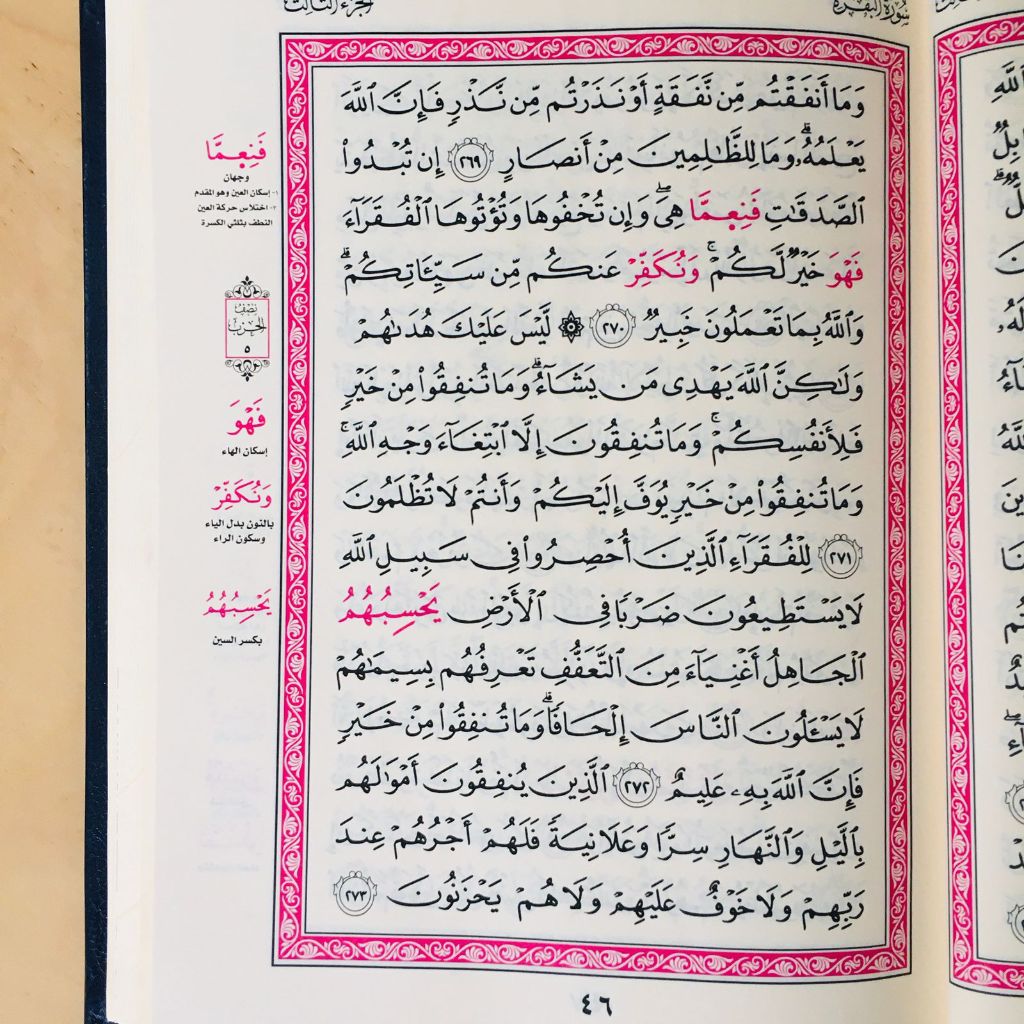 سُورَةُ البَقَرَة
الجُزْءُ الثَّالِثُ
وَمَا أَنفَقْتُم مِّن نَّفَقَةٍ أَوْ نَذَرْتُم مِّن نَّذْرٍ فَإِنَّ ٱللَّهَ
يَعْلَمُهُۥۗ وَمَا لِلظَّٰلِمِينَ مِنْ أَنصَارٍ ٢٦٩ إِن تُبْدُوا۟
ٱلصَّدَقَٰتِ فَنِعِمَّا هِىَۖ وَإِن تُخْفُوهَا وَتُؤْتُوهَا ٱلْفُقَرَآءَ
فَهْوَ خَيْرٌ لَّكُمْۚ وَنُكَفِّرْ عَنكُم مِّن سَيِّـَٔاتِكُمْۗ
وَٱللَّهُ بِمَا تَعْمَلُونَ خَبِيرٌ ٢٧٠ ۞ لَّيْسَ عَلَيْكَ هُدَىٰهُمْ
وَلَٰكِنَّ ٱللَّهَ يَهْدِى مَن يَشَآءُۗ وَمَا تُنفِقُوا۟ مِنْ خَيْرٍ
فَلِأَنفُسِكُمْۚ وَمَا تُنفِقُونَ إِلَّا ٱبْتِغَآءَ وَجْهِ ٱللَّهِۚ
وَمَا تُنفِقُوا۟ مِنْ خَيْرٍ يُوَفَّ إِلَيْكُمْ وَأَنتُمْ لَا تُظْلَمُونَ
٢٧١ لِلْفُقَرَآءِ ٱلَّذِينَ أُحْصِرُوا۟ فِى سَبِيلِ ٱللَّهِ
لَا يَسْتَطِيعُونَ ضَرْبًا فِى ٱلْأَرْضِ يَحْسِبُهُمُ
ٱلْجَاهِلُ أَغْنِيَآءَ مِنَ ٱلتَّعَفُّفِ تَعْرِفُهُم بِسِيمَٰهُمْ
لَا يَسْـَٔلُونَ ٱلنَّاسَ إِلْحَافًاۗ وَمَا تُنفِقُوا۟ مِنْ خَيْرٍ
فَإِنَّ ٱللَّهَ بِهِۦ عَلِيمٌ ٢٧٢ ٱلَّذِينَ يُنفِقُونَ أَمْوَٰلَهُم
بِٱلَّيْلِ وَٱلنَّهَارِ سِرًّا وَعَلَانِيَةً فَلَهُمْ أَجْرُهُمْ عِندَ
رَبِّهِمْ وَلَا خَوْفٌ عَلَيْهِمْ وَلَا هُمْ يَحْزَنُونَ ٢٧٣
فَنِعِمَّا
وجهان
١- إسكان العين وهو المقدم
٢- اختلاس حركة العين
النطق بثلثي الكسرة
نِصْفُ
الحِزْب
٥
فَهْوَ
إسكان الهاء
وَنُكَفِّرْ
بالنون بدل الياء
وسكون الراء
يَحْسِبُهُمُ
بكسر السين
٤٦